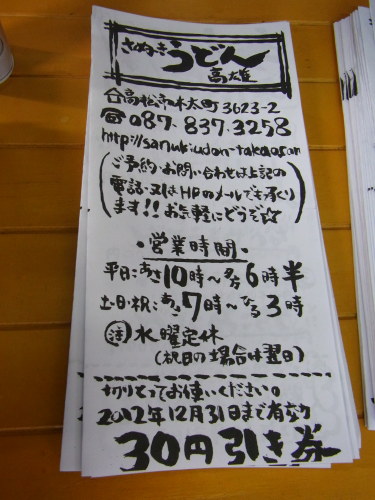 さぬき うどん 高雄
合高松市木太町3623-2
☎087-837-3258
http://sanukiudon-takao.com
(ご予約・お問い合わせは上記の
電話・又はHPのメールでも承くり
ます!!お気軽にどうぞ☆)
・営業時間・
平日:あさ10時〜夕方6時半
土・日・祝:あさ7時〜ひる3時
注 水曜定休
(祝日の場合は翌日)
切りとってお使いください。
2012年12月31日まで有効
30円引き券